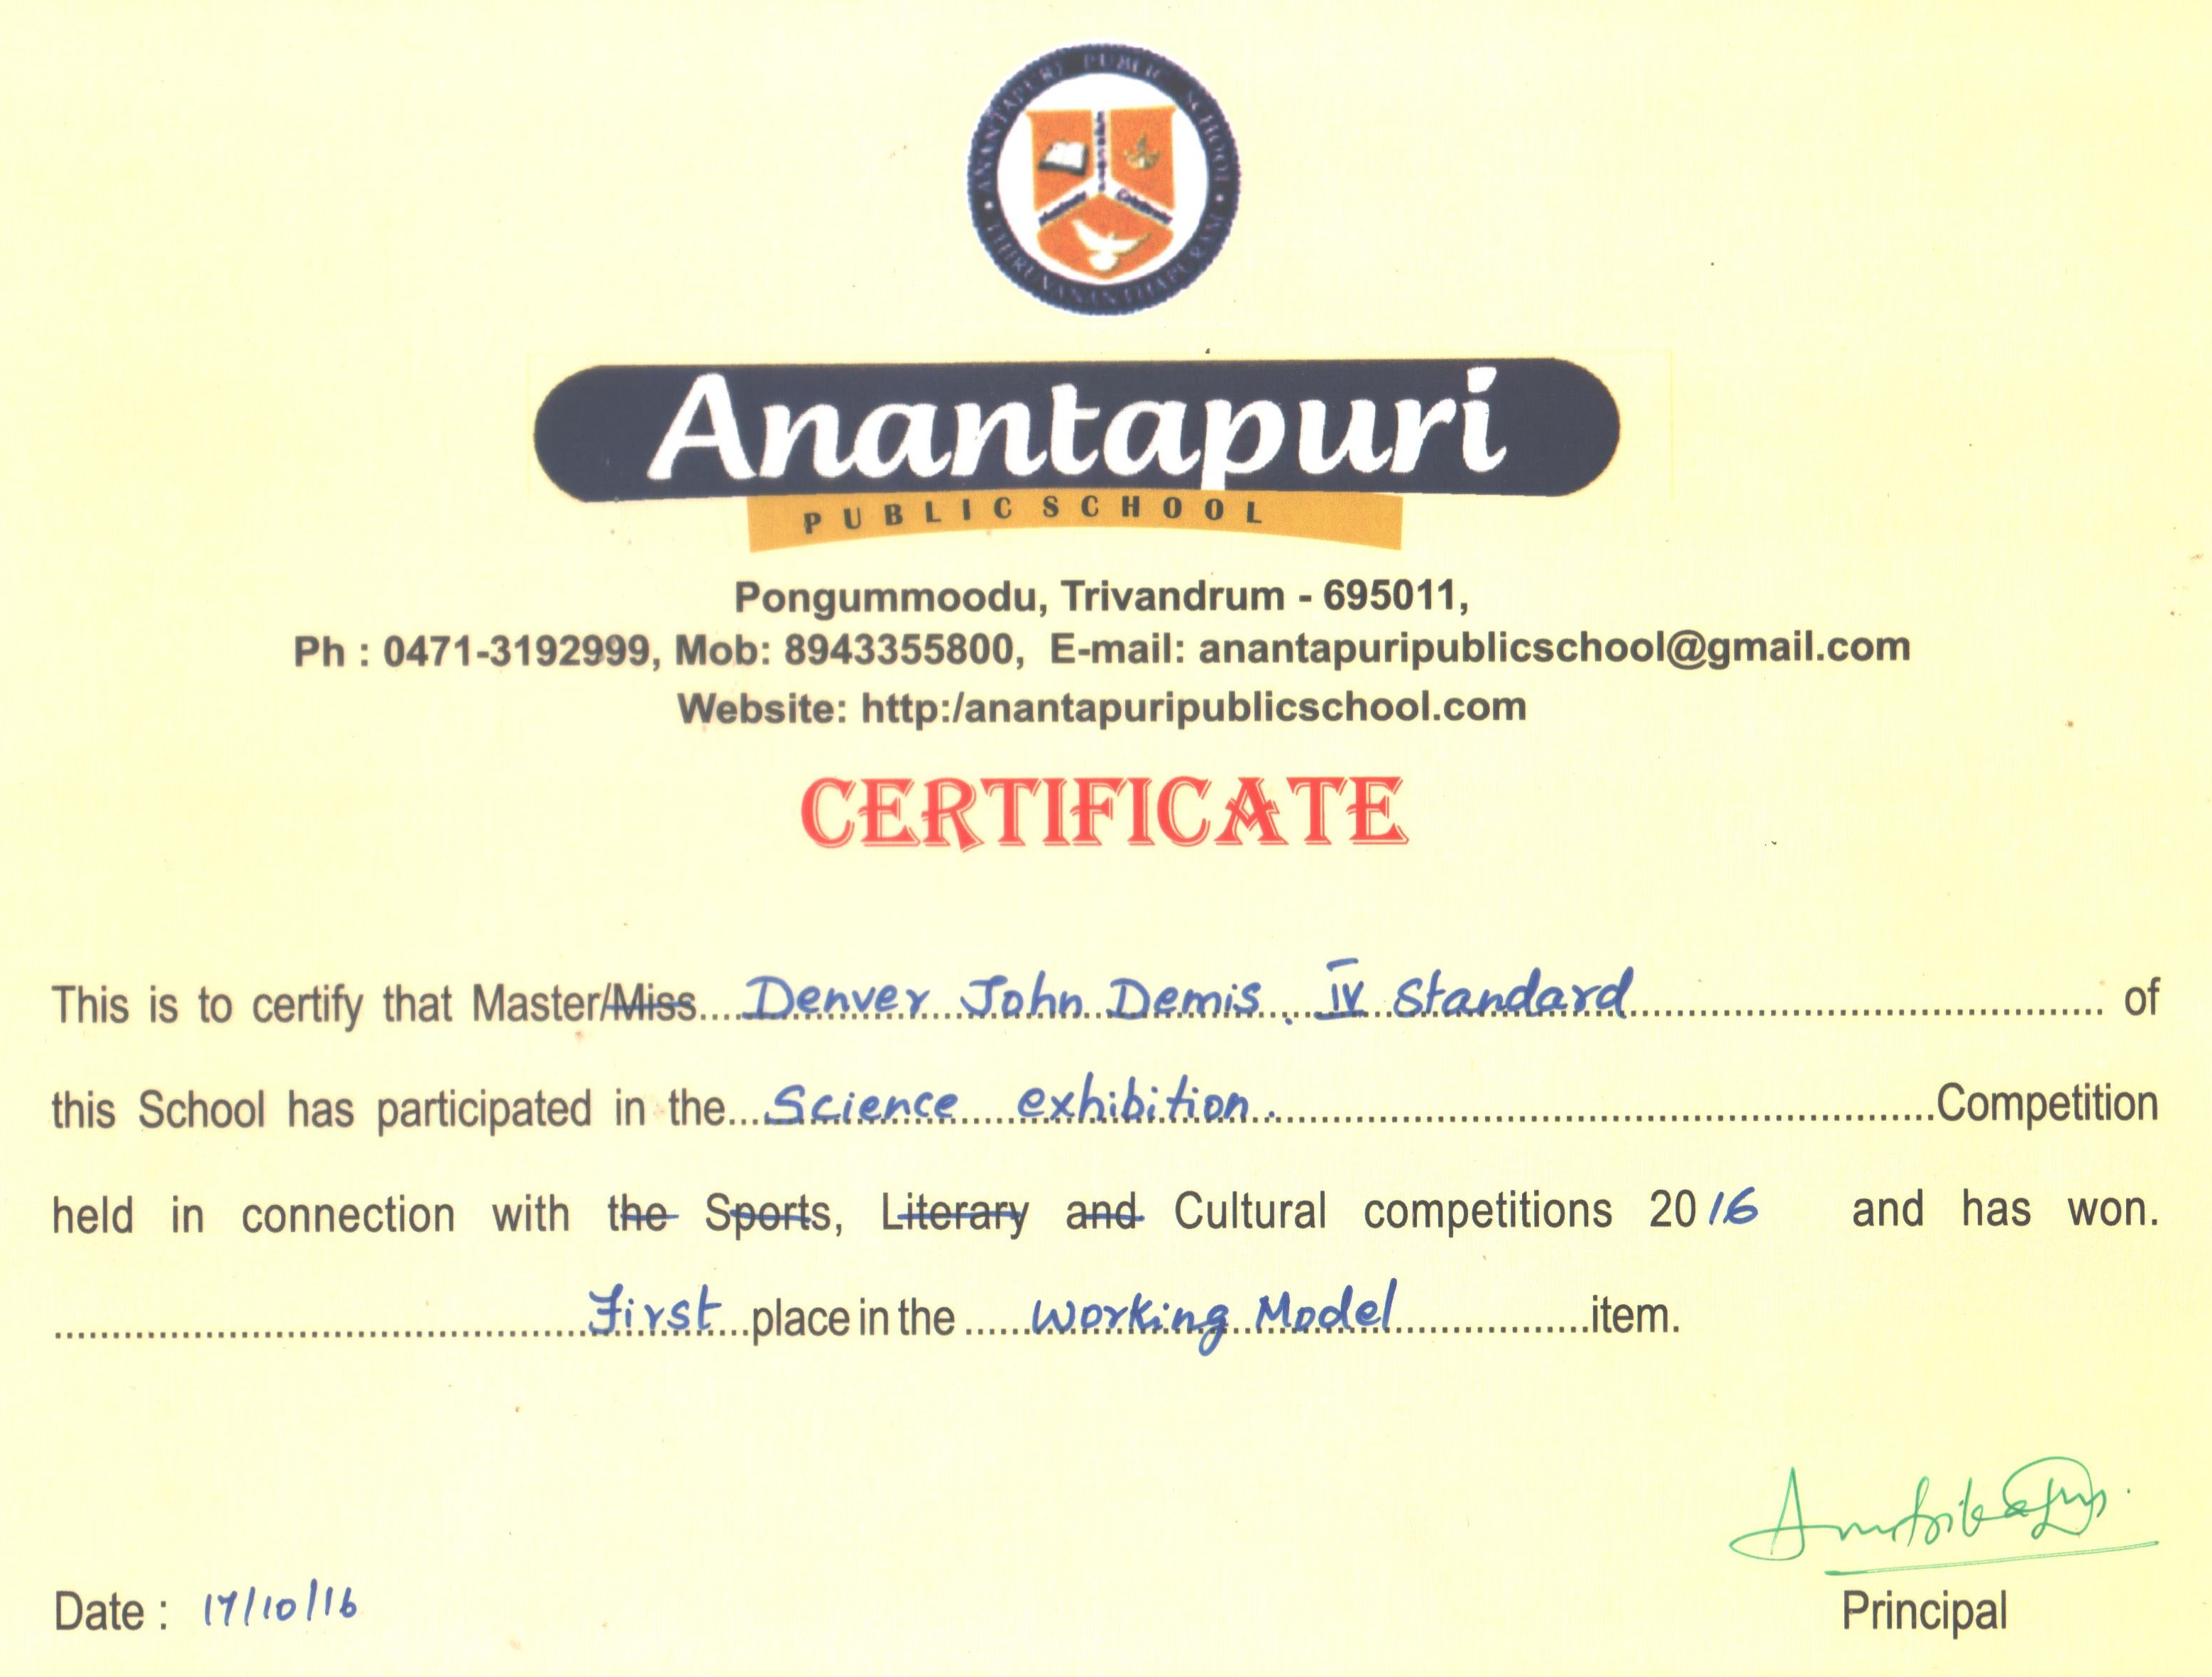 ANANTAPURI PUBLIC SCHOOL
THIRUVANANTHAPURAM
Anantapuri
PUBLIC SCHOOL
Pongummoodu, Trivandrum - 695011,
Ph : 0471-3192999, Mob: 8943355800, E-mail: anantapuripublicschool@gmail.com
Website: http:/anantapuripublicschool.com
CERTIFICATE
This is to certify that Master/Miss....Denver John Demis. IV Standard.... of
this School has participated in the...Science exhibition....Competition
held in connection with the Sports, Literary and Cultural competitions 2016 and has won.
....First...place in the ......Working Model......item.
Date : 17/10/16
Principal